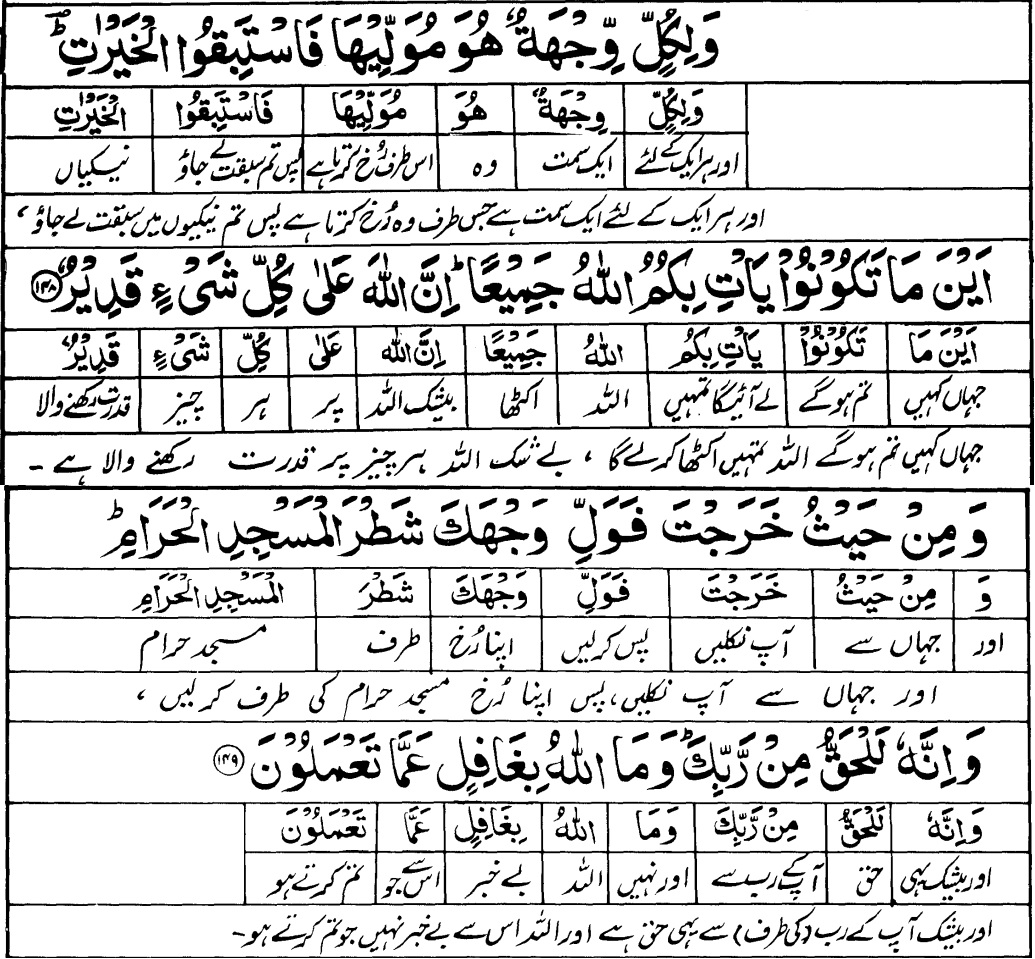 وَلِكُلٍّ وِّجْهَةٌ هُوَ مُوَلِّيْهَا فَاسْتَبِقُوا الْخَيْرٰتِ ؕ
وَلِكُلٍّ وِجْهَةٌ هُوَ مُوَلِّيْهَا فَاسْتَبِقُوا الْخَيْرٰتِ
اور ہر ایک کے لئے ایک سمت وہ اس طرف رُخ کرتا ہے پس تم سبقت لے جاؤ نیکیاں
اور ہر ایک کے لئے ایک سمت ہے جس طرف وہ رُخ کرتا ہے پس تم نیکیوں میں سبقت لے جاؤ ،
اَيْنَ مَا تَكُوْنُوْا يَاْتِ بِكُمُ اللّٰهُ جَمِيْعًا ؕ اِنَّ اللّٰهَ عَلٰى كُلِّ شَىْءٍ قَدِيْرٌ ﴿۱۴۸﴾
اَيْنَ مَا تَكُوْنُوْا يَاْتِ بِكُمُ اللّٰهُ جَمِيْعًا اِنَّ اللّٰهَ عَلٰى كُلِّ شَىْءٍ قَدِيْرٌ
جہاں کہیں تم ہوگے لے آئیگا تمہیں اللہ اکٹھا بیشک اللہ پر ہر چیز قدرت رکھنے والا
جہاں کہیں تم ہوگے اللہ تمہیں اکٹھا کرلے گا ، بے شک اللہ ہر چیز پر قدرت رکھنے والا ہے -
وَ مِنْ حَيْثُ خَرَجْتَ فَوَلِّ وَجْهَكَ شَطْرَ الْمَسْجِدِ الْحَرَامِ ؕ
وَ مِنْ حَيْثُ خَرَجْتَ فَوَلِّ وَجْهَكَ شَطْرَ الْمَسْجِدِ الْحَرَامِ
اور جہاں سے آپ نکلیں پس کرلیں اپنا رُخ طرف مسجد حرام
اور جہاں سے آپ نکلیں، پس اپنا رُخ مسجد حرام کی طرف کرلیں ،
وَ اِنَّهٗ لَلْحَقُّ مِنْ رَّبِّكَ ؕ وَ مَا اللّٰهُ بِغَافِلٍ عَمَّا تَعْمَلُوْنَ ﴿۱۴۹﴾
وَ اِنَّهٗ لَلْحَقُّ مِنْ رَّبِّكَ وَمَا اللّٰهُ بِغَافِلٍ عَمَّا تَعْمَلُوْنَ
اور بیشک یہی حق آپ کے رب سے اور نہیں اللہ بے خبر اس سے جو تم کرتے ہو
اور بیشک آپ کے رب (کی طرف) سے یہی حق ہے اور اللہ اس سے بے خبر نہیں جو تم کرتے ہو-